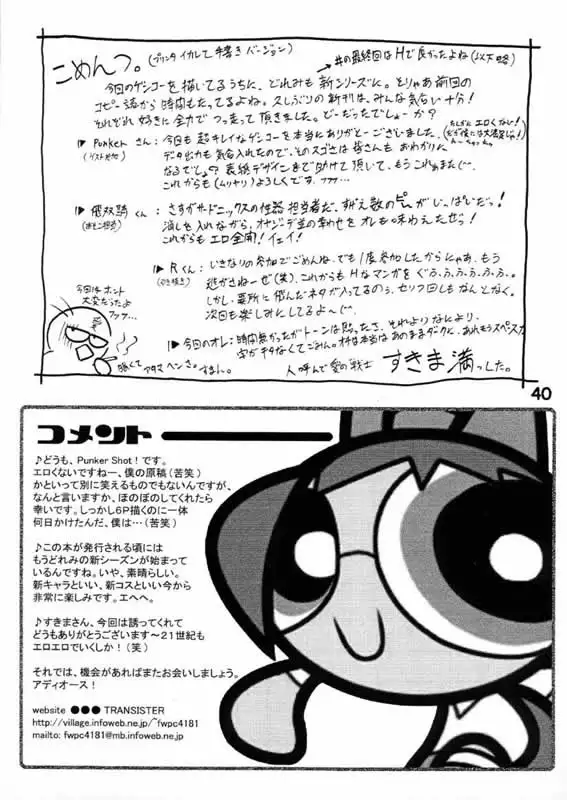 こめんつ。(プリンタイカレて手書きバージョン)
→#の最終回はHで良かったよね(以下略)
今回のゲンコーを描いてるうちに、どれみも新シリーズに。とりゃあ前回の
コピー誌から時間もたってるよね。久しぶりの新刊は、みんな気合い十分!
それぞれ好きに全力でつっ走って頂きました。どーだったでしょーか?
▶Punkerさん:今回も超キレイなゲンコーを本当にありがとーございました。
データ出力も気合入れたので、そのスゴさは皆さんもおわかりに
なるでしょ?表紙デザインまで助けて頂いて、もうこれぁまた(
これからも(ムッツリ)よろしくです。フフフ…
さすがサードニックスの性器担当者だ、
消しを入れながら、オヤジデ並の幸せをオレも味わえたぜっ!
これからもエロ全開!イェイ!
▶Rくん:いきなりの参加でごめんね、でも1度参加したからにゃあ、もう
逃がさねーぜ(笑)、これからもHなマンガをぐふ、ふ、ふ、ふ、ふ、ふ。
しかし、要所に飛んだネタが入ってるのう、セリフ回しもなんとなく。
次回も楽しみにしてるよ〜
今回はホント
大変だったよ
フフフ…
眠くてアタマヘンさ。すまん。
▶今回のオレ:時間無かったがトーンは貼ったさ、それよりなにより、
字がキタなくてごめん。オチは本当はあのままダークに、あれもうスペースが
人呼んで愛の戦士 すきま満っした。
40
コメント
♪どうも、Punker Shot!です。
エロくないですねー、僕の原稿(苦笑)
かといって別に笑えるものでもないんですが、
なんと言いますか、ほのぼのしてくれたら
幸いです。しっかし6P描くのに一体
何日かけたんだ、僕は…(苦笑)
♪この本が発行される頃には
もうどれみの新シーズンが始まって
いるんですね。いや、素晴らしい。
新キャラといい、新コスといい今から
非常に楽しみです。エヘヘ。
♪すきまさん、今回は誘ってくれて
どうもありがとうございます〜21世紀も
エロエロでいくしか!(笑)
それでは、機会があればまたお会いしましょう。
アディオース!
website ●●● TRANSISTER
http://village.infoweb.ne.jp/~fwpc4181
mailto: fwpc4181@mb.infoweb.ne.jp